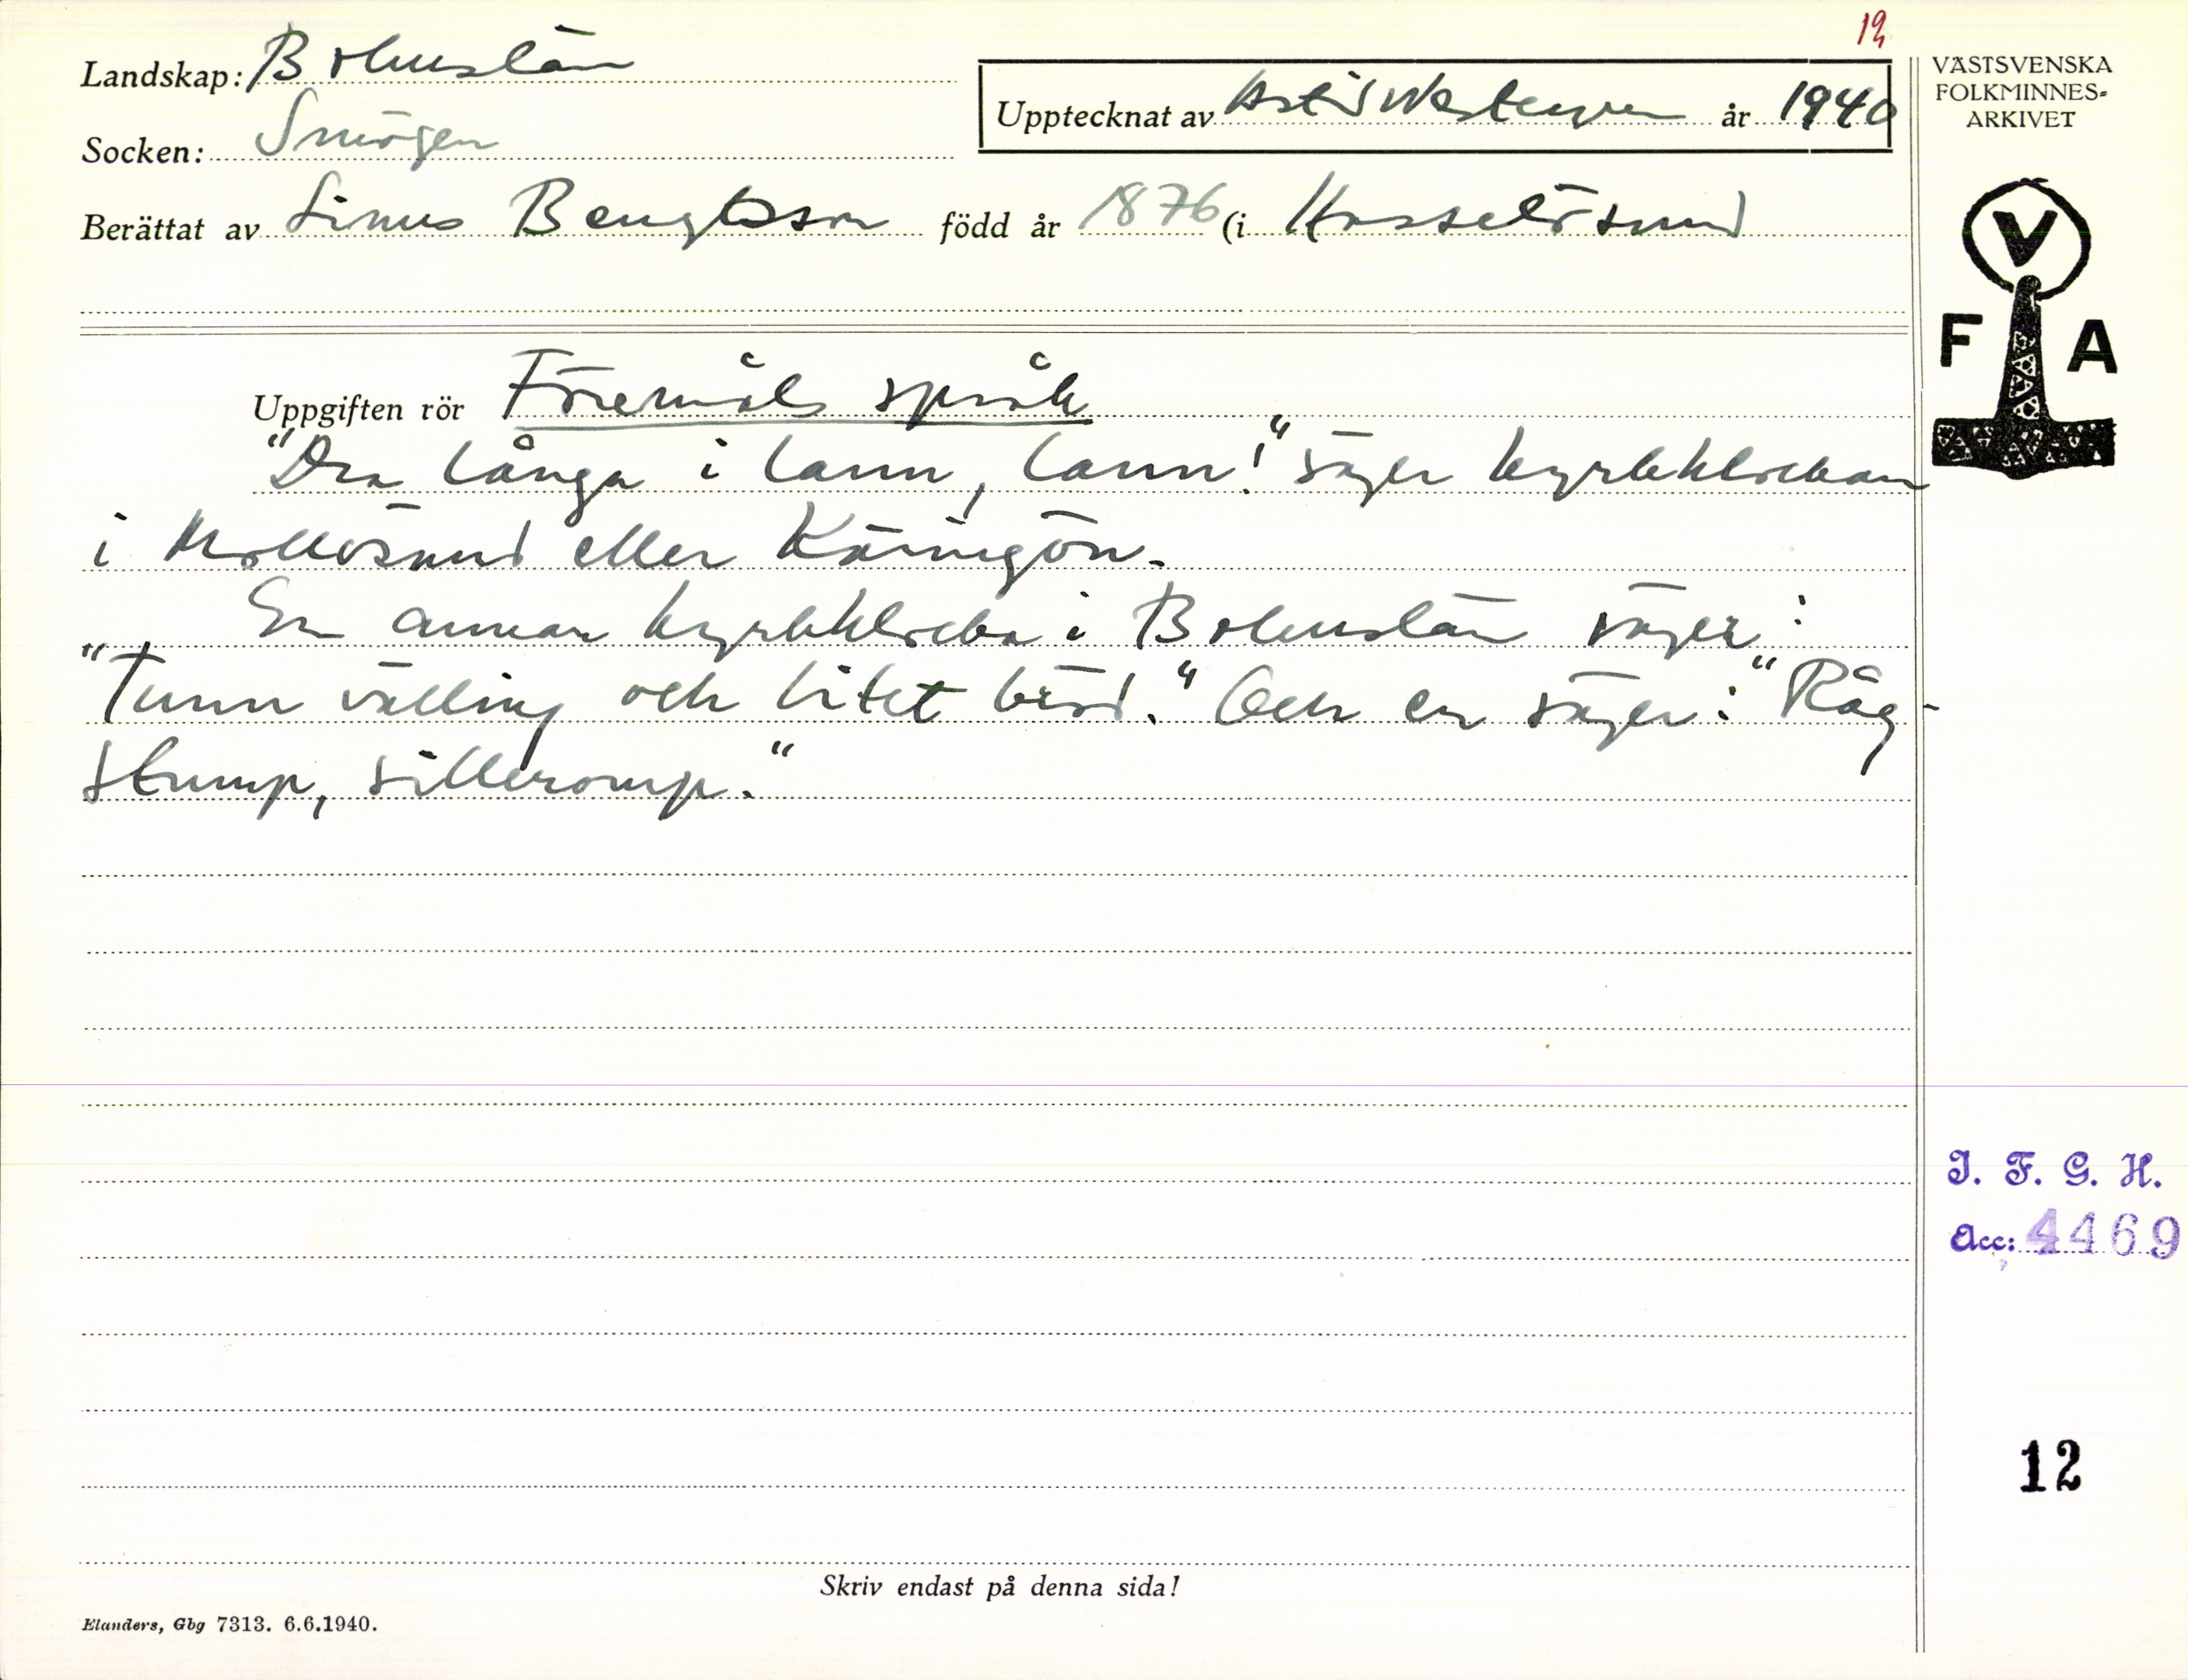 19
Landskap: Bohuslän
Upptecknat av Astrid år 1940
Socken: Smögen
Berättat av Linus Bengtsson född år 1876 (i Hasselösund
VÄSTSVENSKA
FOLKMINNES-
ARKIVET
V
F A
Uppgiften rör Föremåls språk
"Dra långa i lann, lann!" säger kyrkklockan
i Mollösund eller Käringön.
En annan kyrkklocka i Bohuslän säger:
"Tunn välling och litet bröd." Och en säger: "Råg-
stump, silleromp."
I. F. G. H.
Acc: 4469
12
Skriv endast på denna sida!
Elanders, Gbg 7313. 6.6.1940.